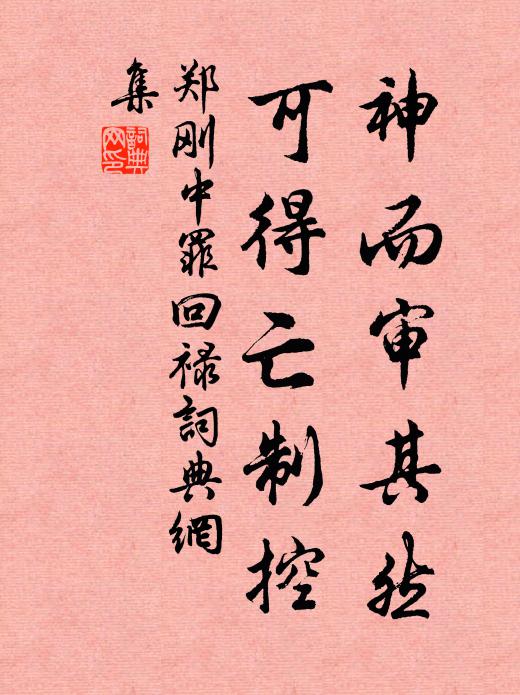 神而审其然
可得亡制控
郑刚中罪回禄詞典網
集
詞典
网印